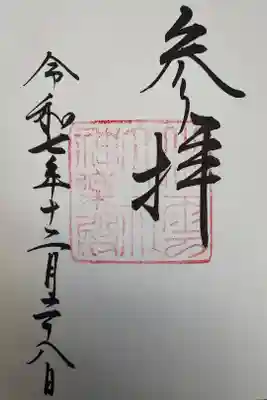 参拝
神楽殿
令和七年十二月二十八日